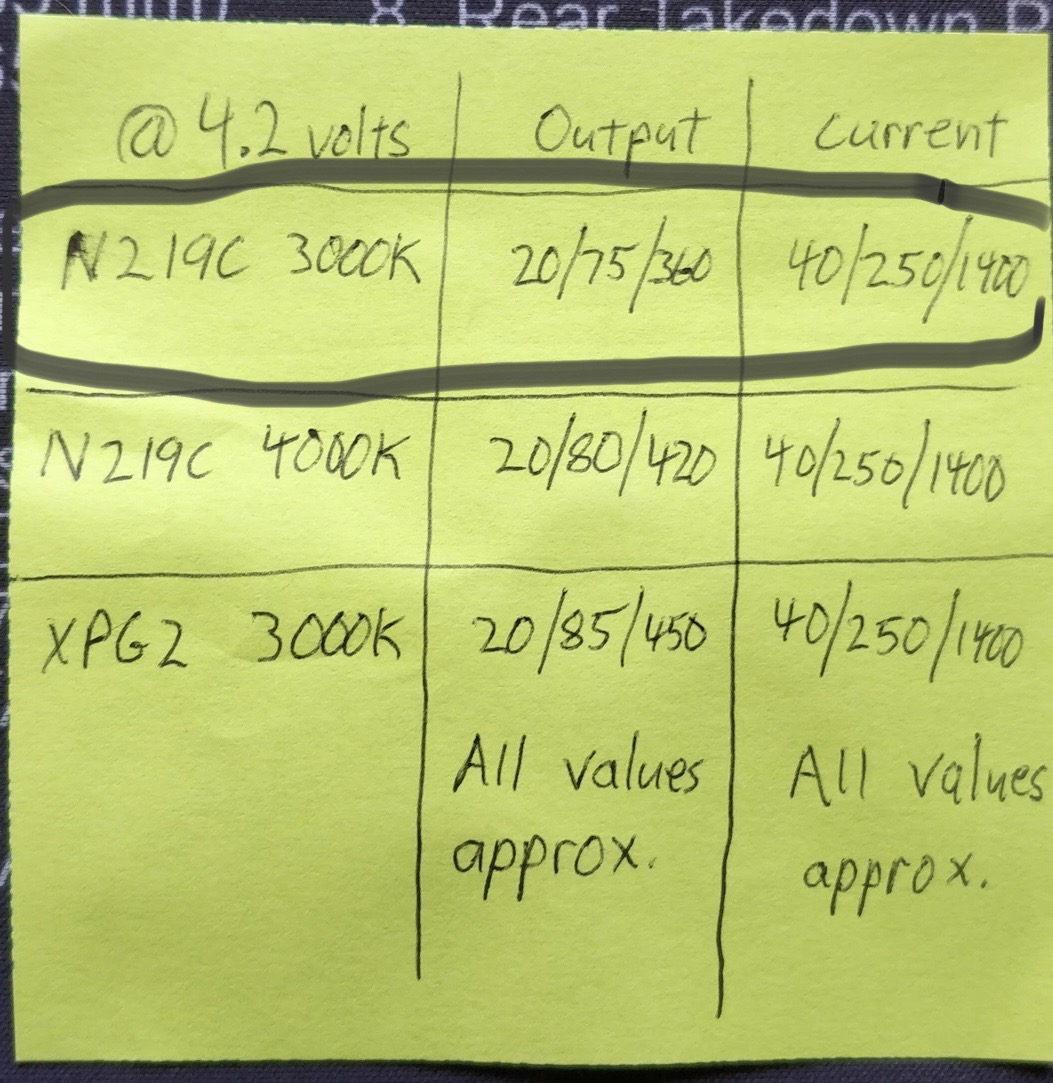 8. Rear Takedown
@ 4.2 volts Output Current
N219C 3000K 20/75/360 40/250/1400
N219C 4000K 20/80/420 40/250/1400
XPG2 3000K 20/85/450 40/250/1400
All values All values
approx. approx.